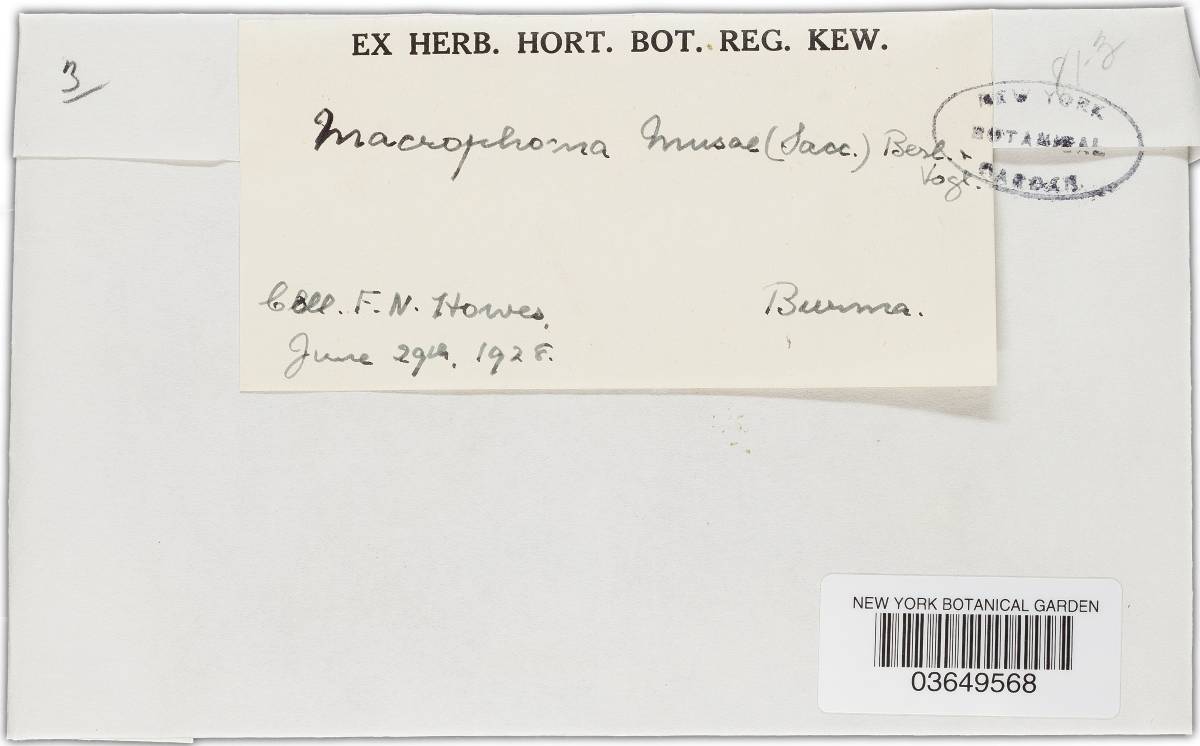 3
EX HERB. HORT. BOT. REG. KEW.
Macrophoma Musae (Sacc.) Berl. &
Vogl.
NEW YORK
BOTANICAL
GARDEN.
Coll. F. N. Howes.
Burma.
June 29th, 1928.
NEW YORK BOTANICAL GARDEN
03649568